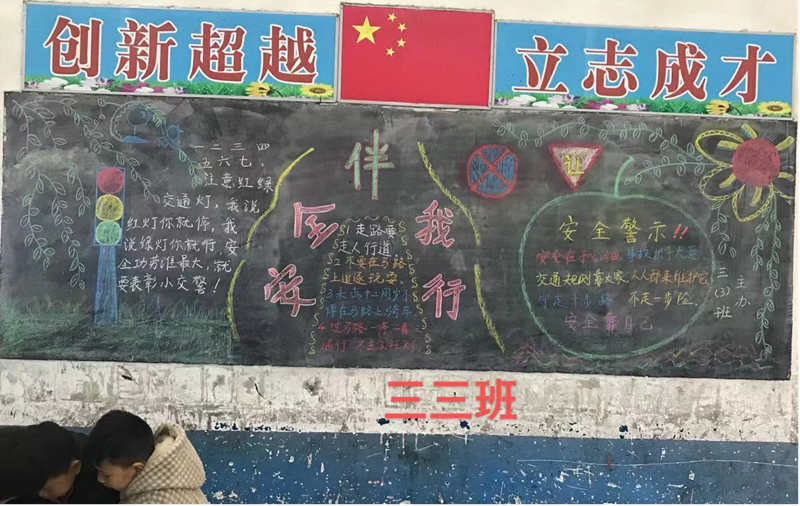 创新超越
立志成才
一二三四
五六七，
注意红绿
交通灯，我说
红灯你就停，我
说绿灯你就行，安
全功劳谁最大，就
要表彰小交警！
安全伴我行
1走路要
走人行道
2.不要在马路
上追逐玩耍
3未满十二周岁不
得在马路上骑车
4.过马路一停二看
三通行
让
安全警示!!
安全在我心中 事故出于大意
交通规则靠大家，人人都来维护它
宁走十步路 不走一步险，
安全靠自己
三(3)班
主办
三三班